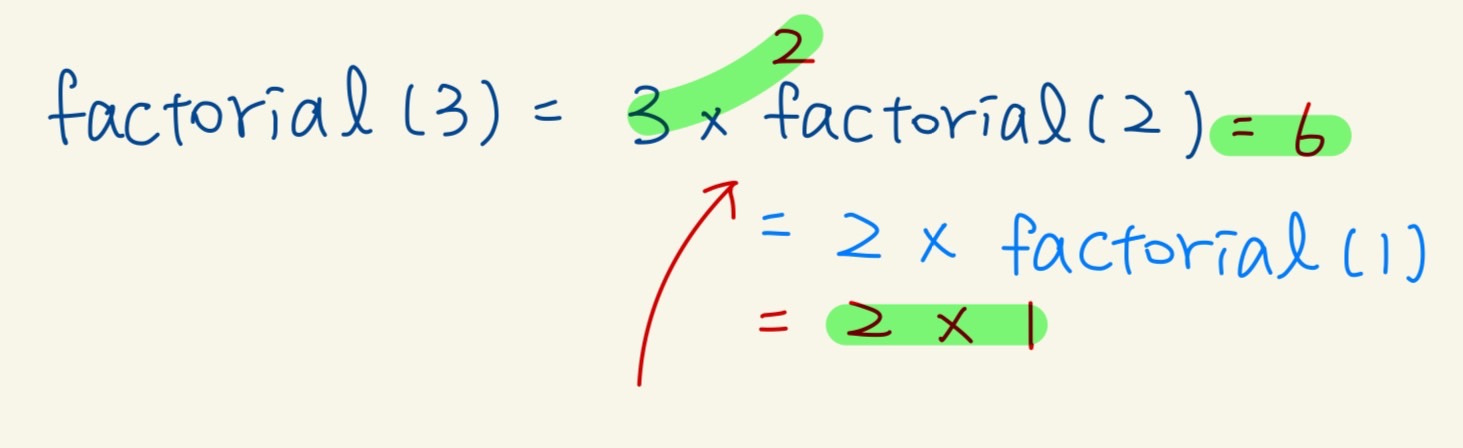 2
factorial (3) = 3 × factorial (2) = 6
= 2 × factorial (1)
= 2 × 1